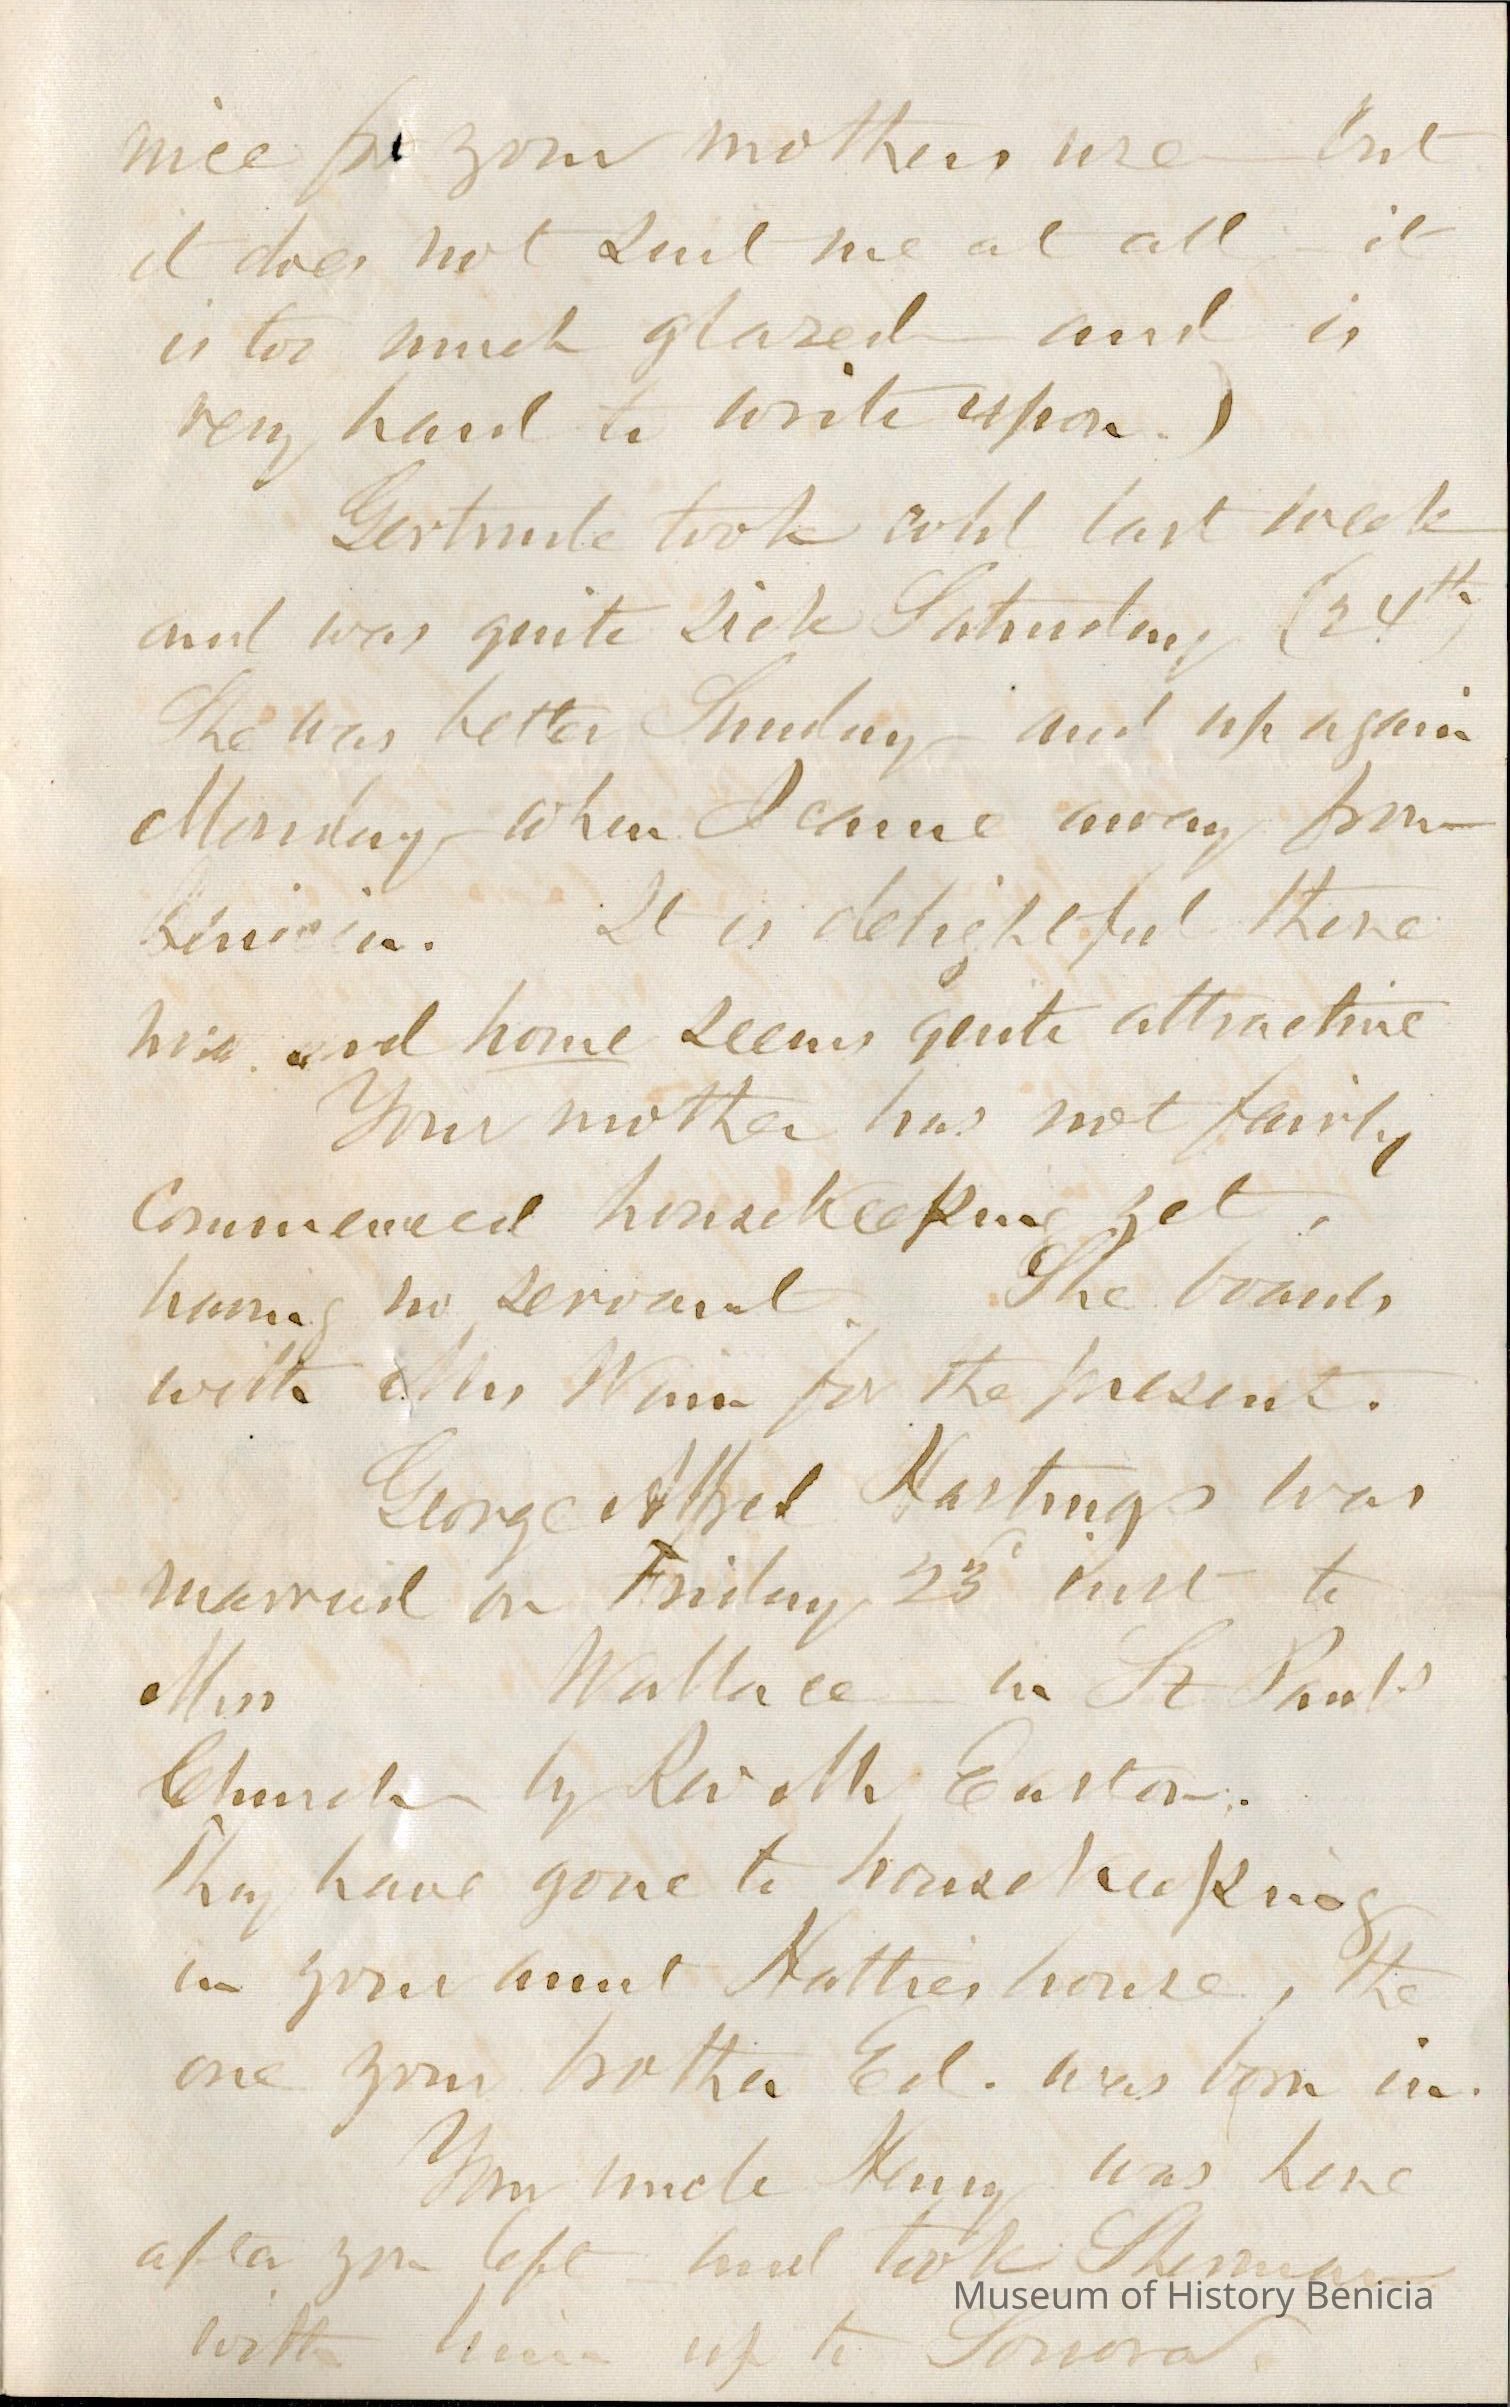 nice for your mothers use but
it does not suit me at all - it
is too much glazed - and is
very hard to write upon.)
Gertrude took cold last week
and was quite sick Saturday (24th)
She was better Sunday - and up again
Monday - when I came away from
Benicia. It is delightful there
now. and home seems quite attractive
Your mother has not fairly
commenced housekeeping yet,
having no servant. She boards
with Mrs for the present.
George Alfred Hastings was
married on Friday 23d inst to
Miss Wallace - in St Pauls
Church - by Rev Mr Easton.
They have gone to housekeeping
in your aunt Hatties house, the
one your brother Ed. was born in.
Your uncle Henry was here
after you left - and took Sherman
with him up to Sonora.
Museum of History Benicia